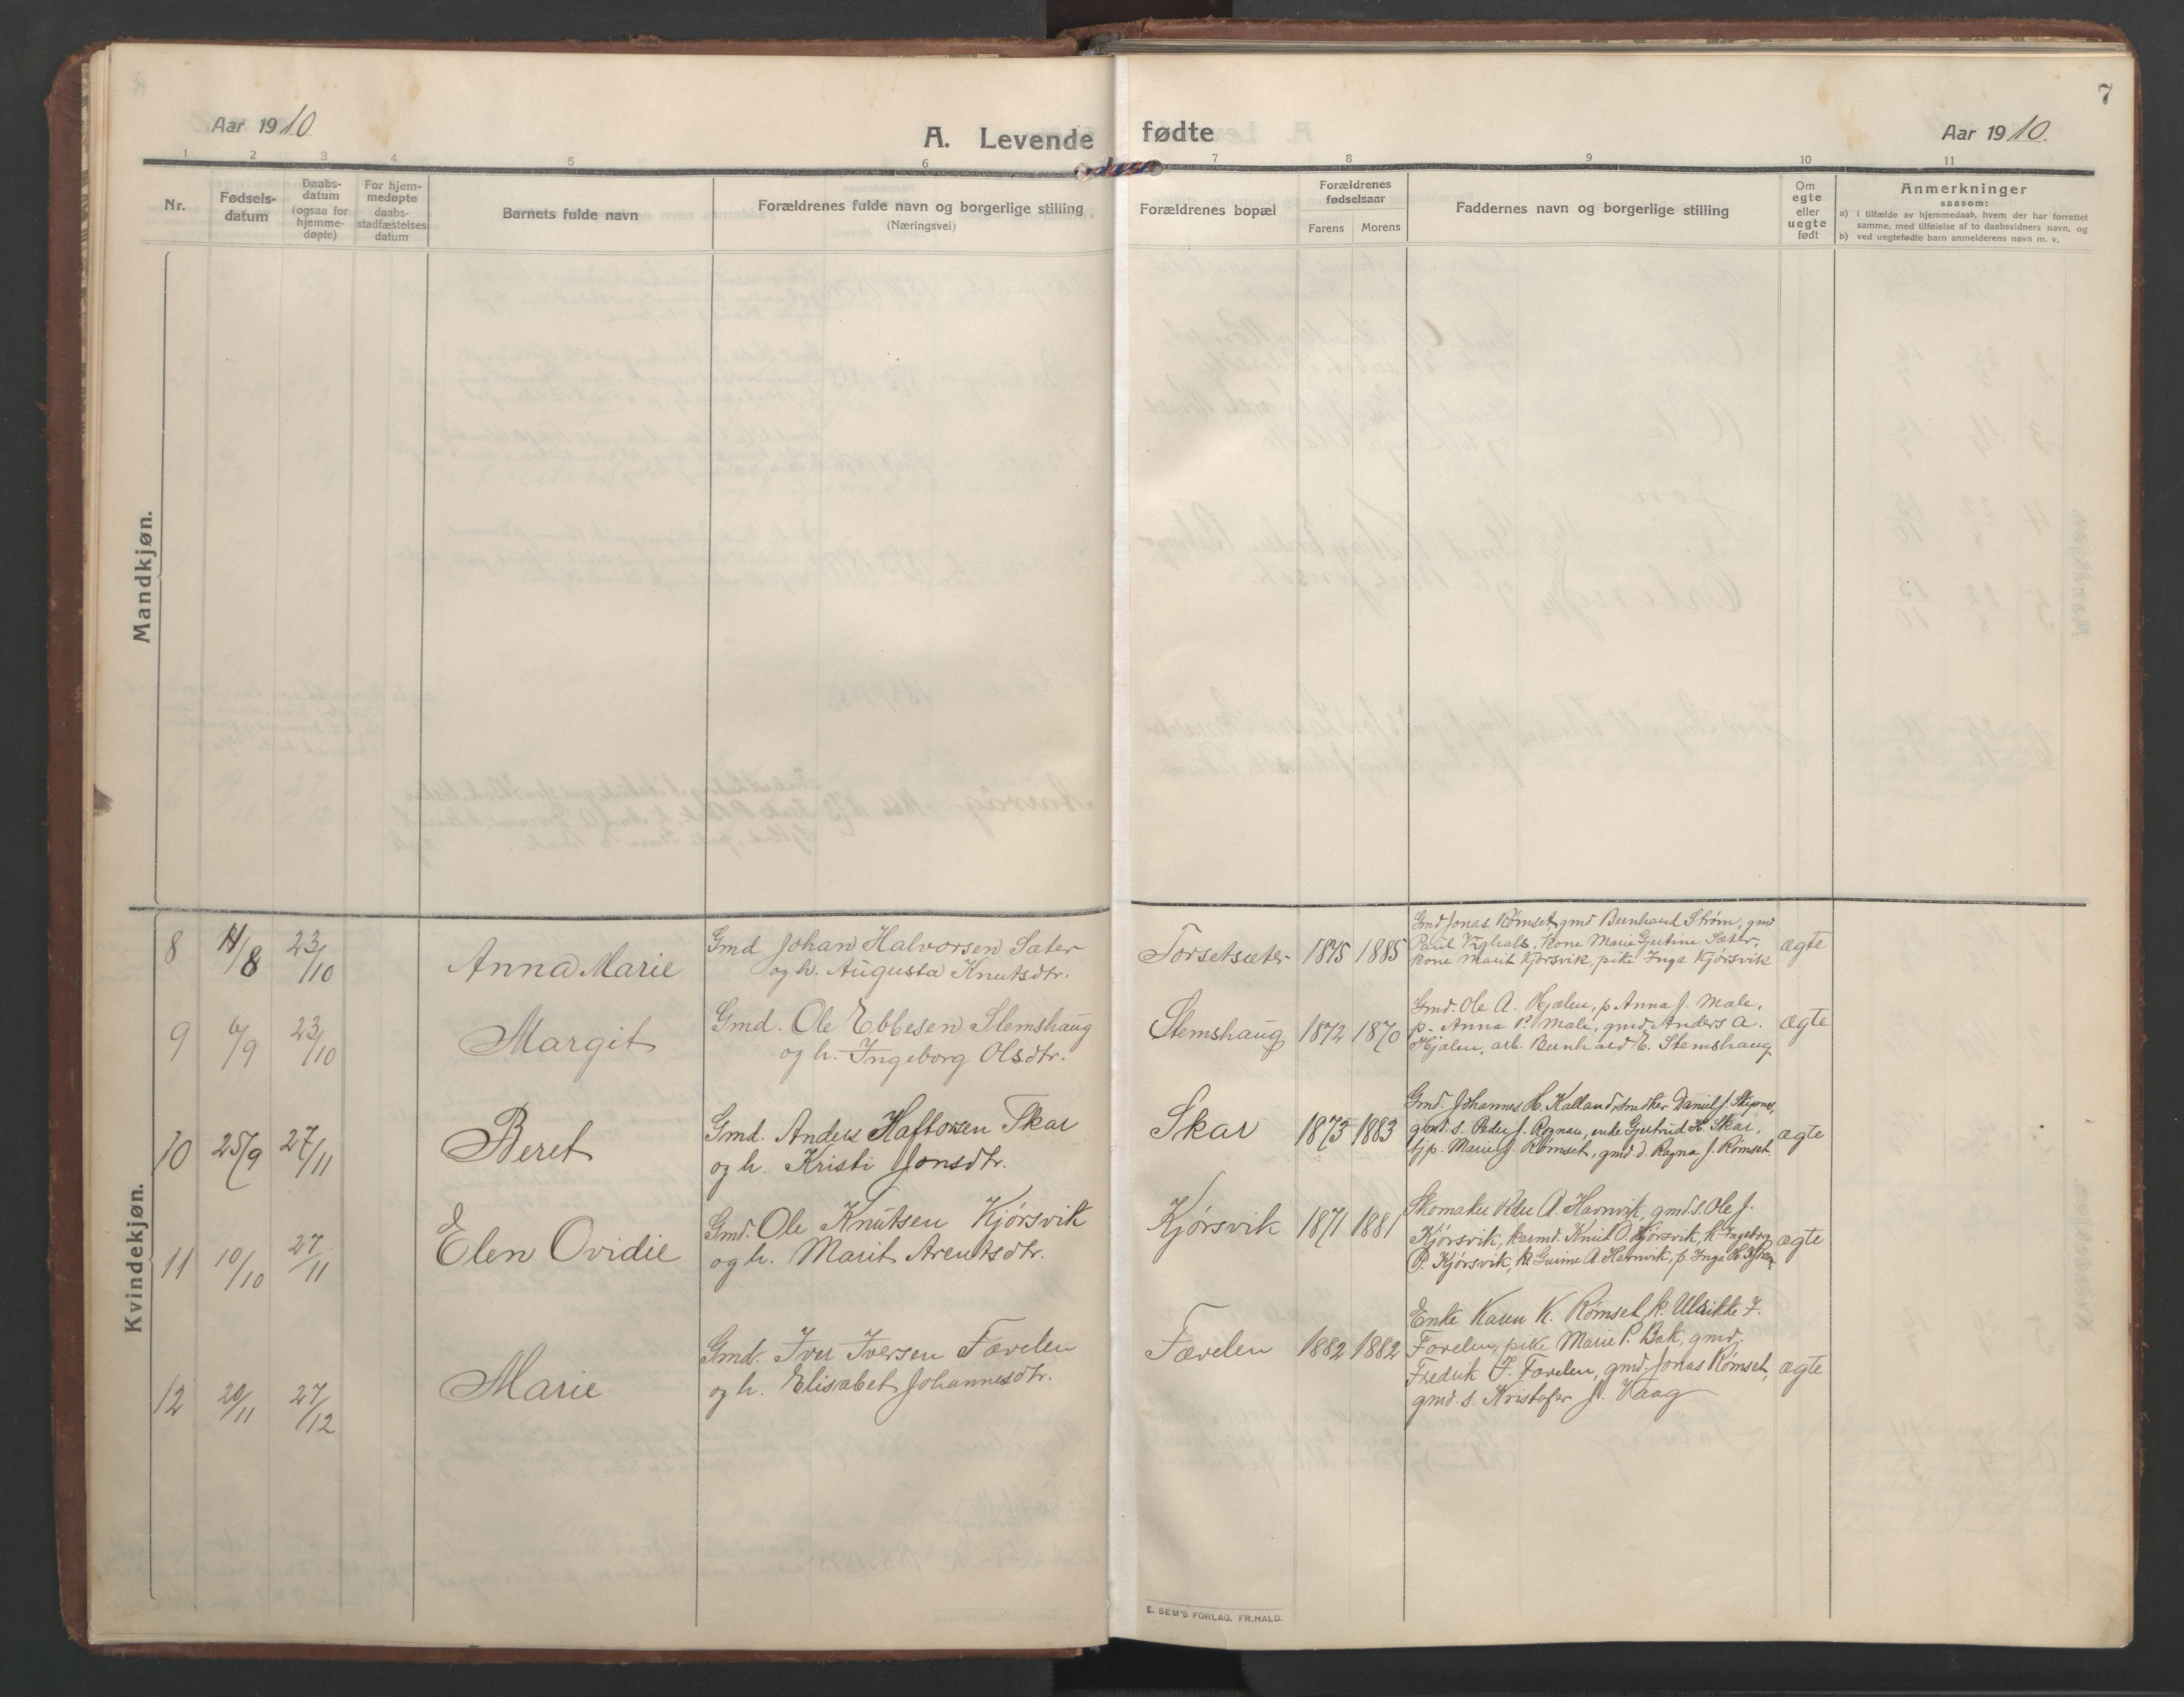 Aar 1910.
A. Levende fødte
Aar 1910.
7
1 2 3 4 5 6 7 8 9 10 11
Nr.
Fødsels-
datum
Daabs-
datum
(ogsaa for
hjemme-
døpte)
For hjem-
medøpte
daabs-
stadfæstelses
datum
Barnets fulde navn
Forældrenes fulde navn og borgerlige stilling
(Næringsvei)
Forældrenes bopæl
Forældrenes
fødselsaar
Farens Morens
Faddernes navn og borgerlige stilling
Om
egte
eller
uegte
født
Anmerkninger
saasom:
a) i tilfælde av hjemmedaab, hvem der har forrettet
samme, med tilføielse af to daabsvidners navn, og
b) ved uegtefødte barn anmelderens navn m. v.
Mandkjøn.
Kvindekjøn.
8 14/8 23/10
Anna Marie
Gmd Johan Halvorsen Sæter
og h. Augusta Knutsdtr.
Torsetsæter 1875 1885
Gmd Jonas Rømset, gmd Bernhard Strøm, gmd
Paul Vighals, kone Marie Gjertine Sæter,
kone Marit Kjørsvik, pike Inga Kjørsvik
ægte
9 6/9 23/10
Margit
Gmd. Ole Ebbesen Stemshaug
og h. Ingeborg Olsdtr.
Stemshaug 1872 1870
Gmd. Ole A. Hjælen, p Anna J. Male,
p. Anna P. Male, gmd Anders A.
Hjælen, arb. Bernhard E. Stemshaug
ægte
10 25/9 27/11
Beret
Gmd. Anders Haftorsen Skar
og h. Kristi Jonsdtr.
Skar 1875 1883
Gmd. Johannes H. Kalland, smdker Daniel J Skipnes,
gmd. s. Peder J. Rognau, enke Gjertrud H. Skar,
tjp. Marie J. Rømset, gmd. d. Ragna J. Rømset.
ægte
11 10/10 27/11
Elen Ovidie
Gmd. Ole Knutsen Kjørsvik
og h. Marit Arentsdtr.
Kjørsvik 1871 1881
Skomaker Peder A. Havnvik, gmd. s. Ole J.
Kjørsvik, kaarmd. Knut O. Kjørsvik, k. Ingeborg
P. Kjørsvik, A. Havnvik, p. Inga
ægte
12 20/11 27/12
Marie
Gmd. Iver Iversen Fævelen
og h. Elisabet Johannesdtr.
Fævelen 1882 1882
Enke Karen K. Rømset, k. Ulrikke F.
Fævelen, pike Marie P. Bak, gmd.
Fredrik I. Fævelen, gmd. Jonas Rømset,
gmd. s. Kristofer J. Vaag
ægte
E. SEM'S FORLAG. FR.HALD.